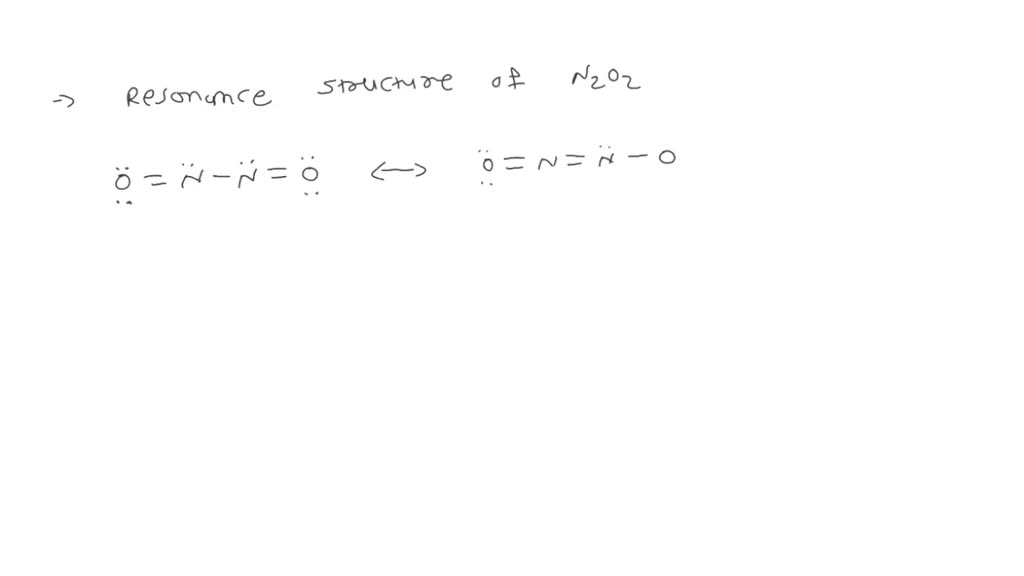 → Resonance structure of N2O2
Ö = N̈ - N̈ = Ö ⟷ Ö = N = N̈ - O